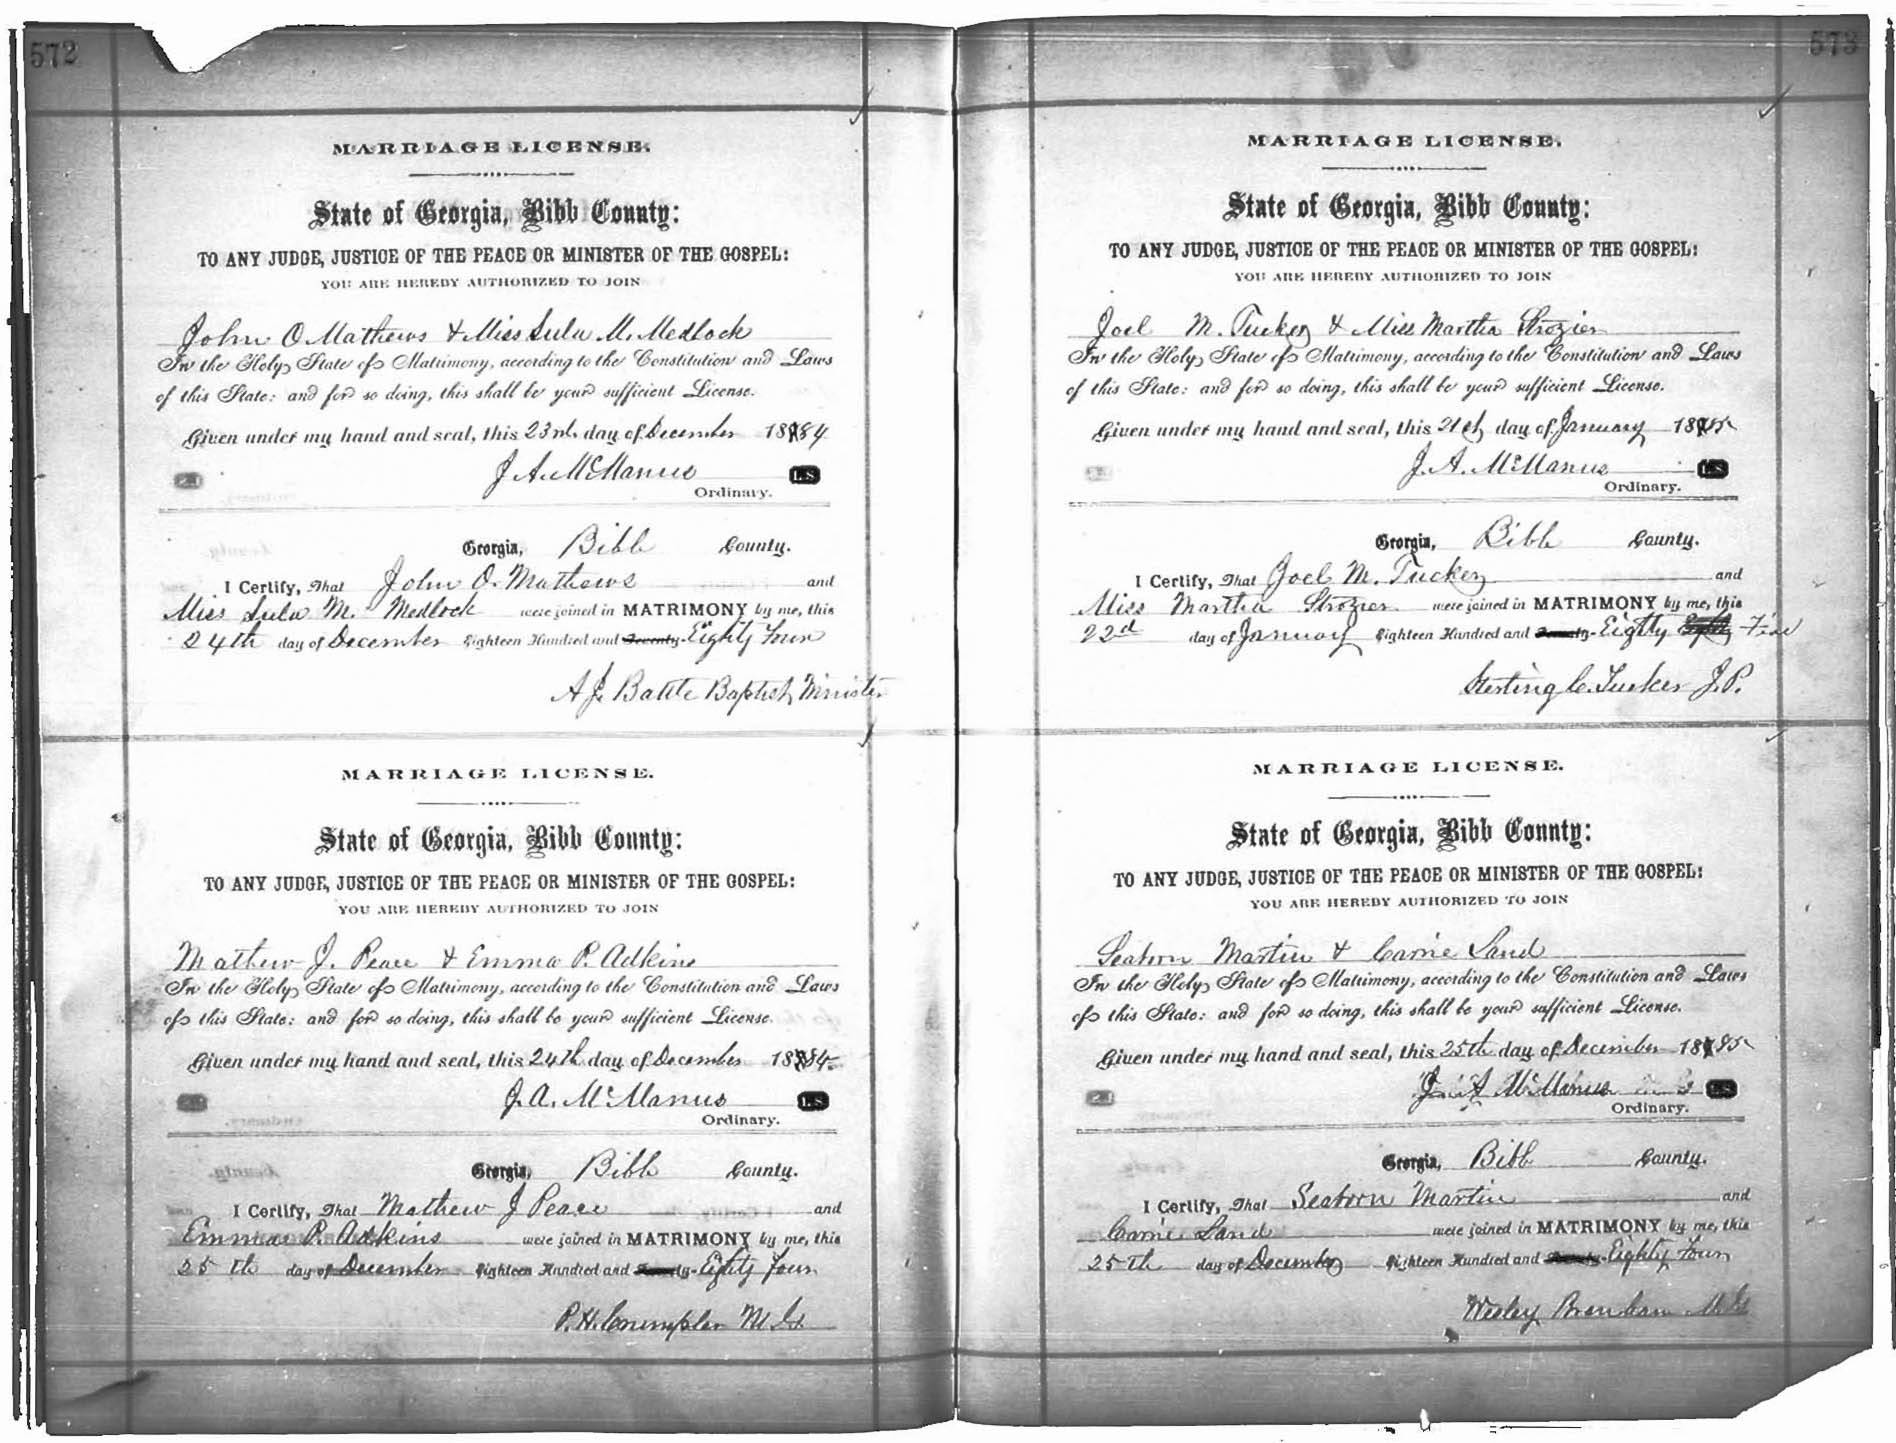 572
MARRIAGE LICENSE.
State of Georgia, Bibb County:
TO ANY JUDGE, JUSTICE OF THE PEACE OR MINISTER OF THE GOSPEL:
YOU ARE HEREBY AUTHORIZED TO JOIN
John O. Mathews & Miss Lula M. Medlock
In the Holy State of Matrimony, according to the Constitution and Laws
of this State: and for so doing, this shall be your sufficient License.
Given under my hand and seal, this 23rd day of December 1884
J. A. McManus L.S
Ordinary.
Georgia, Bibb County.
I Certify, That John O. Mathews and
Miss Lula M. Medlock were joined in MATRIMONY by me, this
24th day of December Eighteen Hundred and Seventy- Eighty Four
A J. Battle Baptist Minister
MARRIAGE LICENSE.
State of Georgia, Bibb County:
TO ANY JUDGE, JUSTICE OF THE PEACE OR MINISTER OF THE GOSPEL:
YOU ARE HEREBY AUTHORIZED TO JOIN
Mathew J. Peace & Emma P. Adkins
In the Holy State of Matrimony, according to the Constitution and Laws
of this State: and for so doing, this shall be your sufficient License.
Given under my hand and seal, this 24th day of December 1884
J. A. McManus L.S
Ordinary.
Georgia, Bibb County.
I Certify, That Mathew J Peace and
Emma P. Adkins were joined in MATRIMONY by me, this
25th day of December Eighteen Hundred and Seventy- Eighty Four
P. H. Crumpler M. G.
573
MARRIAGE LICENSE.
State of Georgia, Bibb County:
TO ANY JUDGE, JUSTICE OF THE PEACE OR MINISTER OF THE GOSPEL:
YOU ARE HEREBY AUTHORIZED TO JOIN
Joel M. Tucker & Miss Martha Strozier
In the Holy State of Matrimony, according to the Constitution and Laws
of this State: and for so doing, this shall be your sufficient License.
Given under my hand and seal, this 21st day of January 1885
J. A. McManus L.S
Ordinary.
Georgia, Bibb County.
I Certify, That Joel M. Tucker and
Miss Martha Strozier were joined in MATRIMONY by me, this
22d day of January Eighteen Hundred and Seventy- Eighty Five
Sterling C. Tucker J.P.
MARRIAGE LICENSE.
State of Georgia, Bibb County:
TO ANY JUDGE, JUSTICE OF THE PEACE OR MINISTER OF THE GOSPEL:
YOU ARE HEREBY AUTHORIZED TO JOIN
Seaborn Martin & Carrie Sand
In the Holy State of Matrimony, according to the Constitution and Laws
of this State: and for so doing, this shall be your sufficient License.
Given under my hand and seal, this 25th day of December 1885
J. A McManus L.S
Ordinary.
Georgia, Bibb County.
I Certify, That Seaborn Martin and
Carrie Sand were joined in MATRIMONY by me, this
25th day of December Eighteen Hundred and Seventy- Eighty Four
Wesley M. G